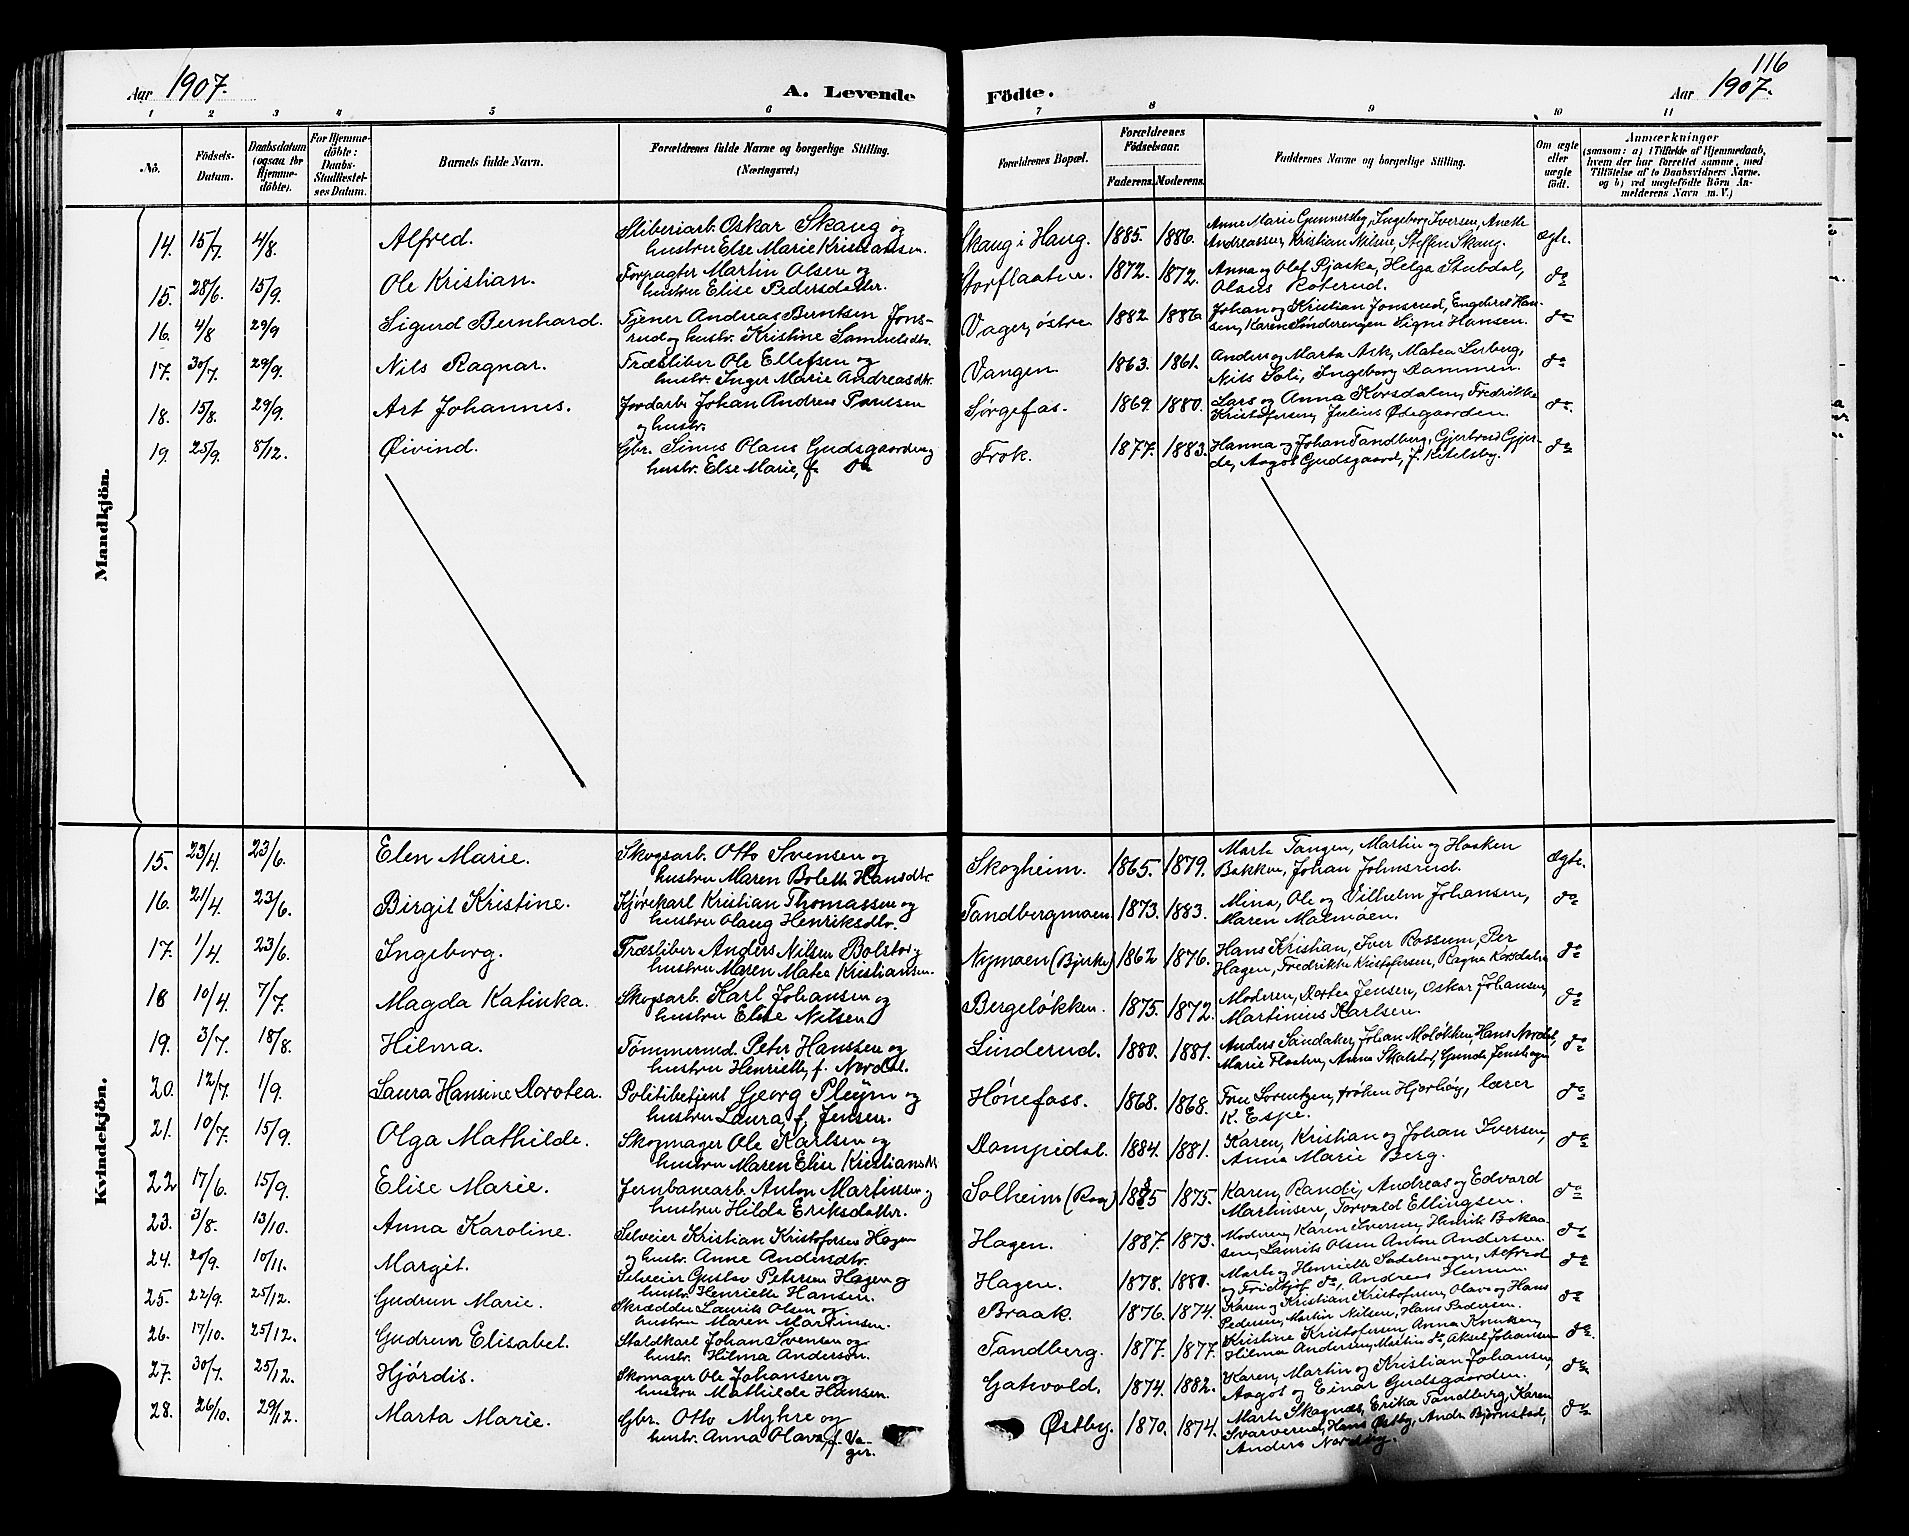 Aar 1907. A. Levende Födte. Aar 1907. 116
1 2 3 4 5 6 7 8 9 10 11
No. Födsels-Datum. Daabsdatum (ogsaa for Hjemme-döbte). For Hjemme-döbte: Daabs-Stadfæstel-ses Datum. Barnets fulde Navn. Forældrenes fulde Navne og borgerlige Stilling. (Næringsvei.) Forældrenes Bopæl. Forældrenes Födselsaar. Faderens. Moderens. Faddernes Navne og borgerlige Stilling. Om ægte eller uægte födt. Anmærkninger (saasom: a) i Tilfælde af Hjemmedaab, hvem der har forrettet samme, med Tilföielse af to Daabsvidners Navne, og b) ved uægtefödte Börn An-melderens Navn m. V.)
Mandkjön.
14. 15/7. 4/8. Alfred. Sliberiarb. Oskar Skaug og Skaug i Haug. 1885. 1886. Anne Marie Gunnersby, Ingeborg Iversen, Anette ægte.
hustru Else Marie Kristiansen. Andreassen, Kristian Nilsen, Steffen Skaug.
15. 28/6. 15/9. Ole Kristian. Forpagter Martin Olsen og Storflaaten. 1872. 1872. Anna og Olaf Pjaska, Helga Stubdal, do
hustru Elise Pedersdatter. Olaus Roterud.
16. 4/8 29/9 Sigurd Bernhard. Tjener Andreas Berntsen Jons- Vager, østre 1882 1886 Johan og Kristian Jonsrud, Engebret Han- do
rud og hustr. Kristine Samuelsdtr. sen, Karen Sønderengen Signe Hansen.
17. 30/7. 29/9. Nils Ragnar. Træsliber Ole Ellefsen og Vangen 1863. 1861. Anders og Marta Ask, Matea Lerberg, do
hustr. Inger Marie Andreasdtr. Nils Soli, Ingeborg Dammen.
18. 15/8. 29/9. Art Johannes. Jordarb. Johan Andreas Paulsen Sørgefos. 1869. 1880. Lars og Anna Korsdalen, Fredrikke do.
og hustr. Kristofersen, Julius Ødegaarden.
19. 25/9. 8/12. Øivind. Gbr. Simus Olaus Gudsgaarden og Frok. 1877. 1883. Hanna og Johan Tandberg, Gjertrud Gjer- do
hustr. Else Marie, f. de, Aagot Gudsgaard, f. Kitelsby.
Kvindekjön.
15. 23/4. 23/6. Elen Marie. Skogsarb. Otto Svensen og Skogheim. 1865. 1879. Marte Tangen, Martin og Haaken ægte.
hustru Maren Bolette Hansdtr. Bakken, Johan Johnsrud.
16. 21/4 23/6. Birgit Kristine. Kjørekarl Kristian Thomassen og Tandbergmoen 1873. 1883. Mina, Ole og Vilhelm Johansen, do
hustru Olaug Henriksdtr. Maren Malmøen.
17. 1/4. 23/6. Ingeborg. Træsliber Anders Nilsen Bolstad og Nymoen (Bjerke) 1862 1876. Hans Kristian, Iver Rossum, Per do
hustru Maren Matea Kristiansen. Hagen, Fredrikke Kristofersen, Ragna Korsdalen
18 10/4 7/7. Magda Katinka. Skogsarb. Karl Johansen og Bergeløkken. 1875. 1872. Moderen, Dortea Jensen, Oskar Johansen, do
hustru Elise Nilsen Martinius Karlsen.
19. 3/7. 18/8. Hilma. Tømmermd. Peter Hanssen og Linderud. 1880. 1881. Anders Sandaker, Johan Moløkken, Hans Nordset, do
hustru Henriette, f. Nordset. Marie Flaaten, Anna Skalstad, Gunda Jenshagen
20. 12/7 1/9. Laura Hansine Dorotea. Politibetjent Georg Pleym og Hønefoss. 1868. 1868. Fru Sorentzen, frøken Hjorhøy, lærer do
hustru Laura, f. Jensen. K. Espe.
21. 10/7. 15/9. Olga Mathilde. Skomager Ole Karlsen og Dompidal. 1884. 1881. Karen, Kristian og Johan Iversen, do
hustru Maren Elise Kristiansdtr. Anna Marie Berg.
22 17/6. 15/9. Elise Marie. Jernbanearb. Anton Martinsen og Solheim 1885 1875. Karen, Randi, Andreas og Edvard do
hustru Hilda Eriksdatter. Martinsen, Torvald Ellingsen.
23. 3/8. 13/10. Anna Karoline. Selveier Kristian Kristofersen Hagen Hagen. 1887. 1873. Moderen, Karen Iversen, Henrik do
og hustr. Anne Andersdtr. Laurits Olsen Anton Andersen
24. 20/9. 10/11. Margit. Selveier Gustav Petersen Hagen og Hagen. 1878. 1880. Marte og Henriette Sadelmager, Alfred do
hustr. Henriette Hansen. og Fridtjof do, Andreas
25. 22/9. 25/12. Gudrun Marie. Skrædder Laurits Olsen og Braak. 1876. 1874. Karen og Kristian Kristofersen, Olava og Hans do
hustru Maren Martinsen. Pedersen, Martin Nilsen, Hans Pedersen.
26. 17/10. 25/12. Gudrun Elisabet. Staldkarl Johan Svensen og Tandberg. 1877. 1877. Kristine Kristofersen Anna Knutsen, do
hustr. Hilma Anderson. Hilma Andersen, Martin do, Aksel Johansen
27. 30/7. 25/12. Hjørdis. Skomager Ole Johansen og Gatvold. 1874. 1882. Karen, Martin og Kristian Johansen, do
hustru Mathilde Hansen. Aagot og Einar Gudsgaarden.
28. 26/10. 29/12. Marta Marie. Gbr. Otto Myhre og Østby. 1870. 1874. Marte Skagnæs, Erika Tandberg, Karen do
hustr. Anna Olava, f. Va- Svarverud, Hans Østby, Andr. Bjørnstad,
ger. Anders Nordby.